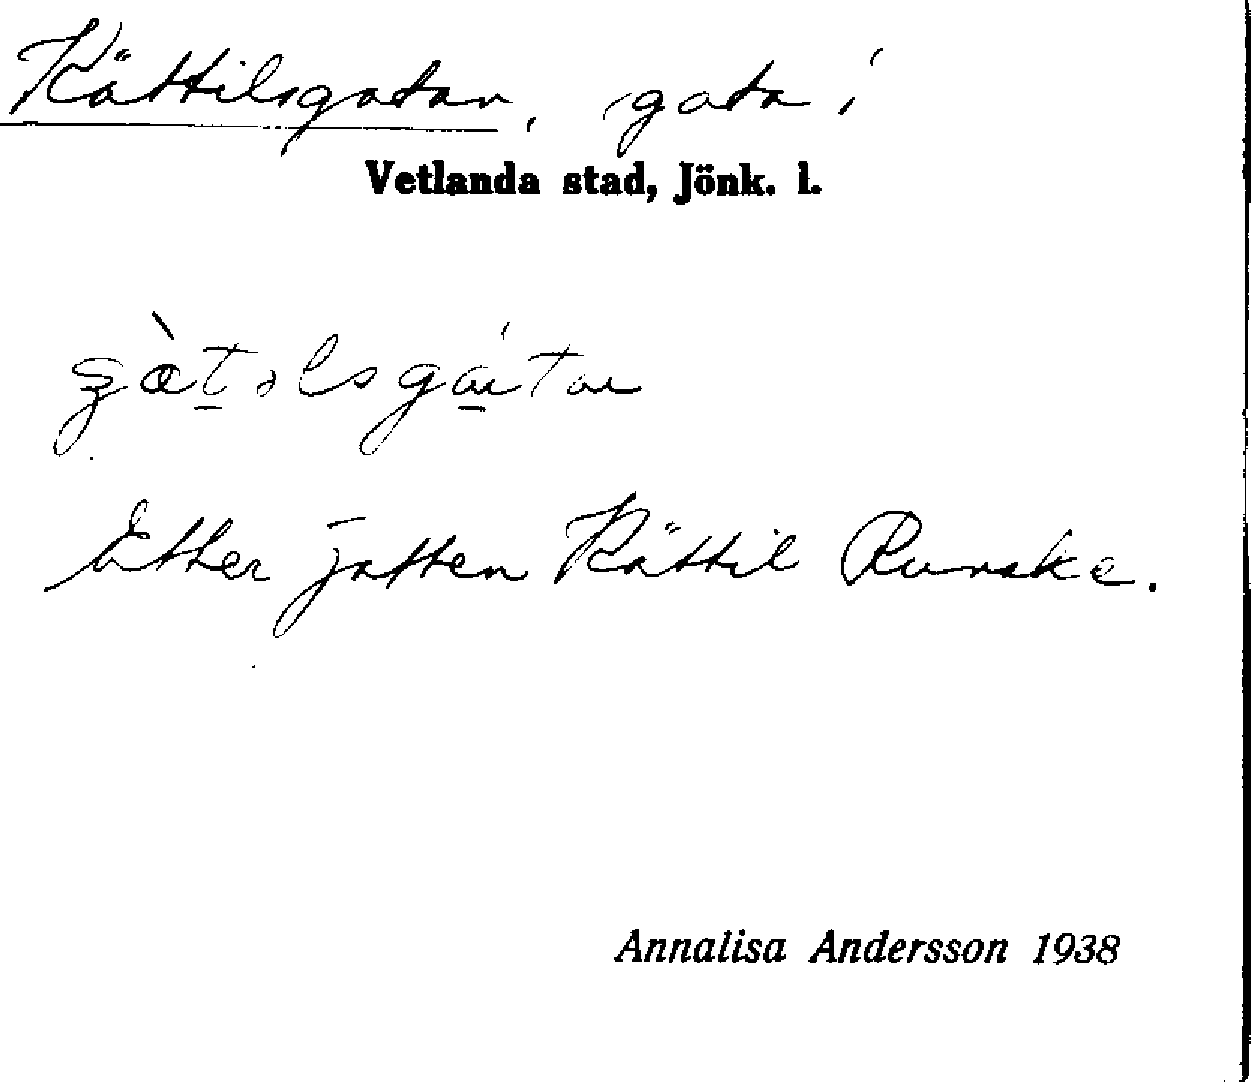 Kättilsgatan, gata i
Vetlanda stad, Jönk. l.
Efter jätten Kättil Runske.
Annalisa Andersson 1938